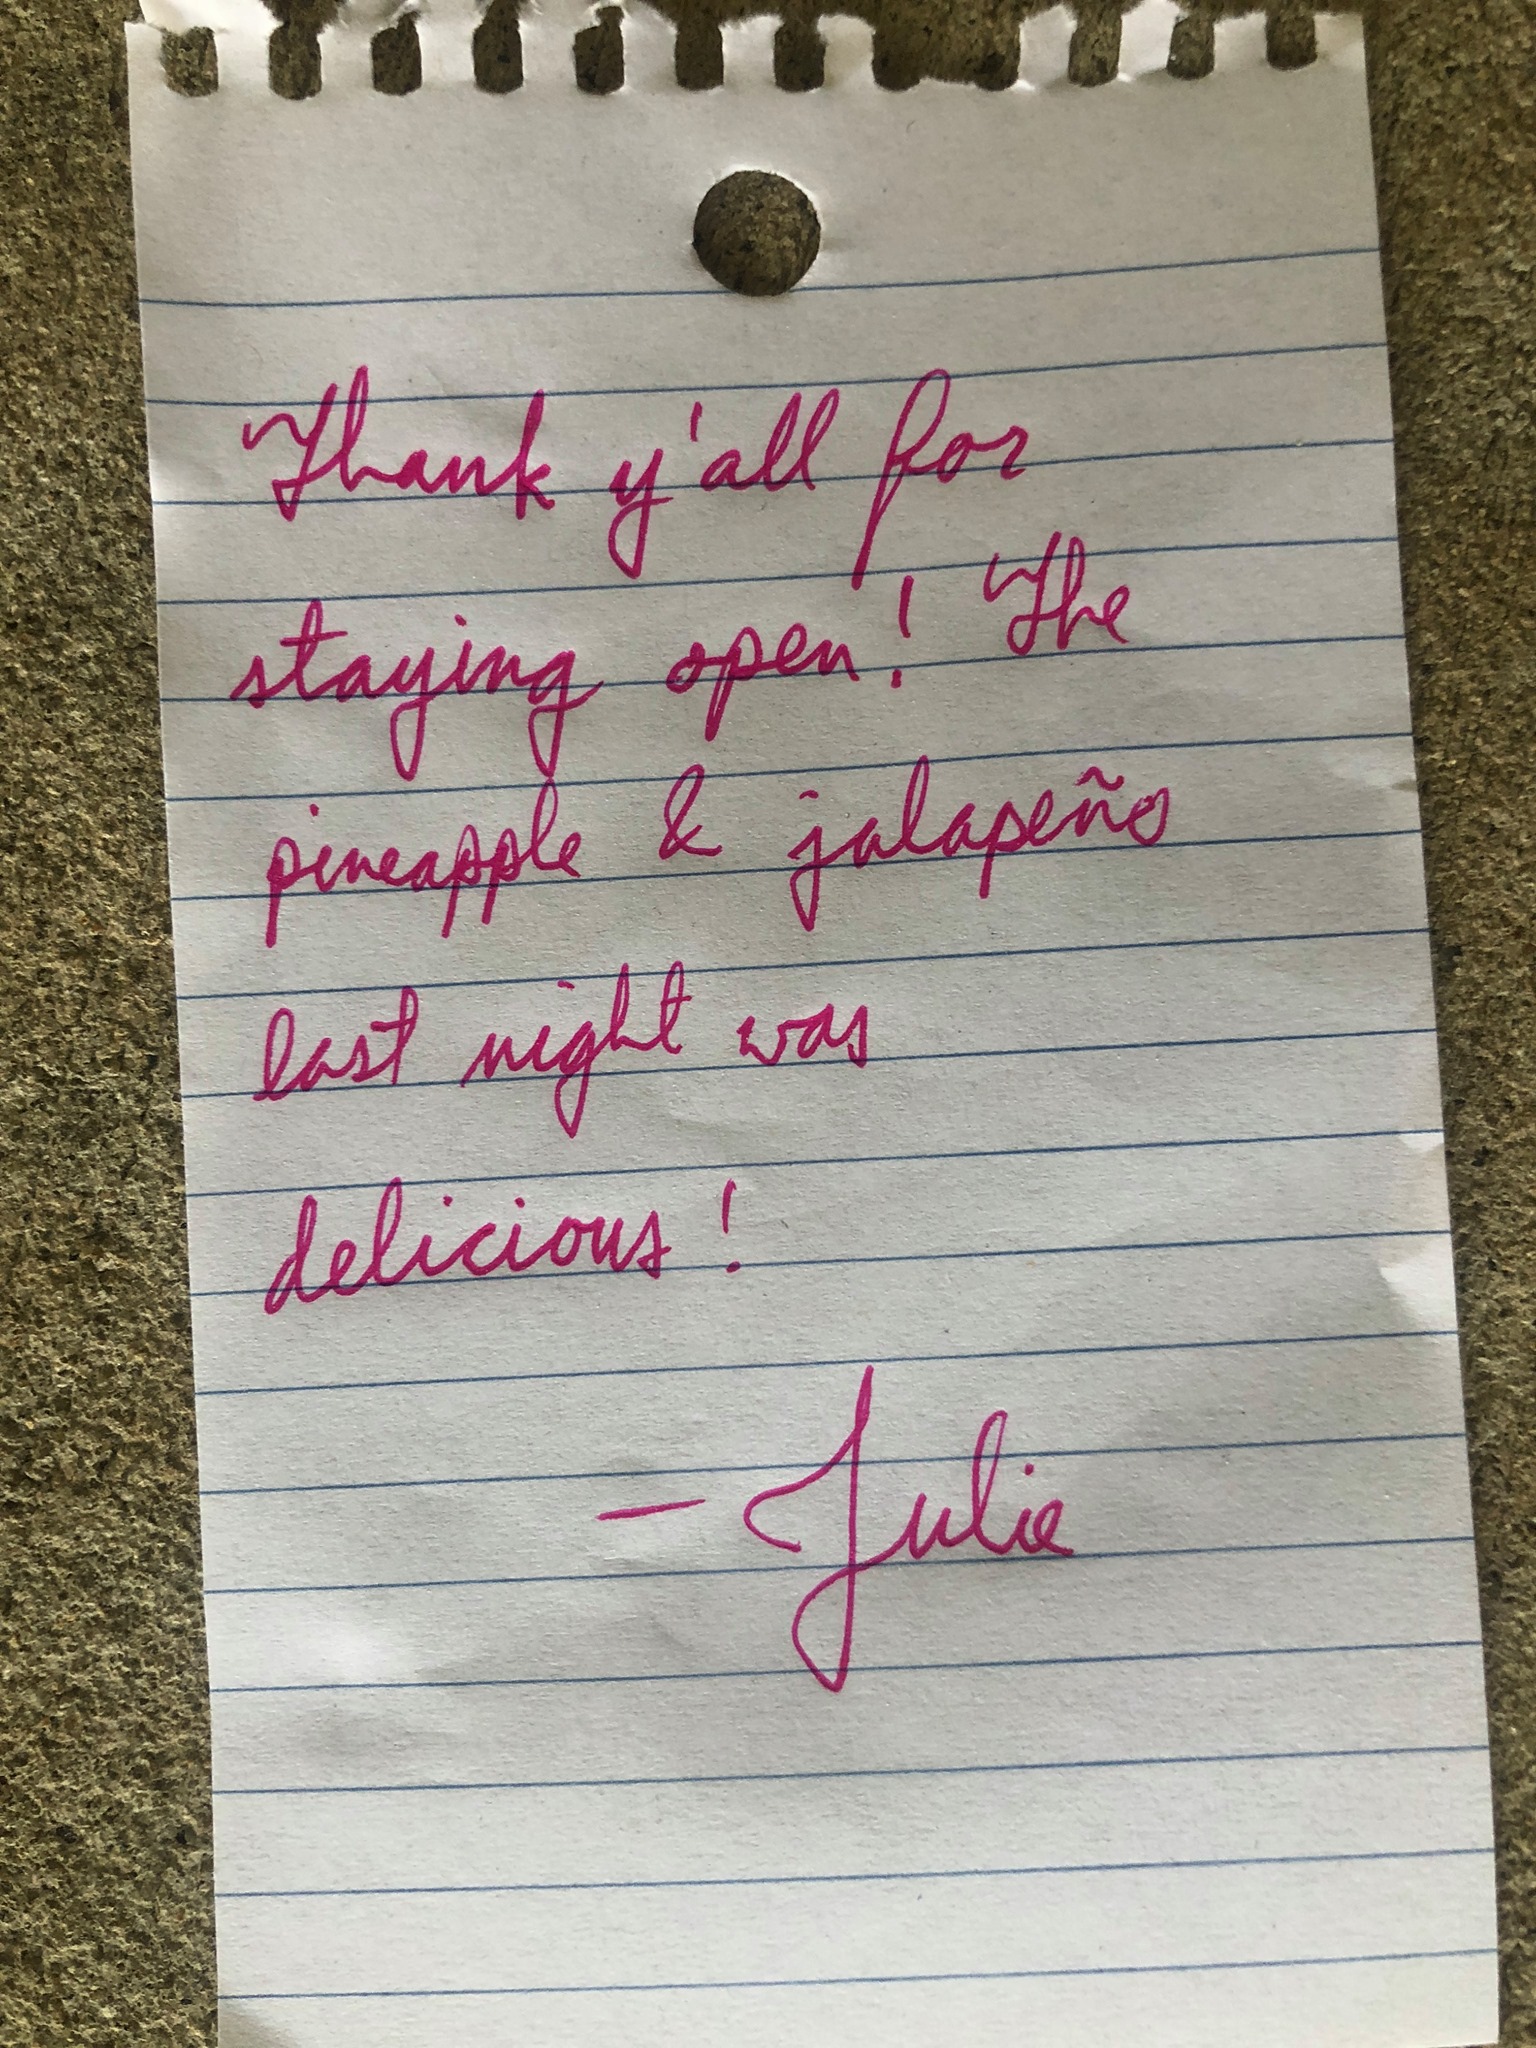 Thank y'all for
staying open! The
pineapple & jalapeño
last night was
delicious!
— Julie